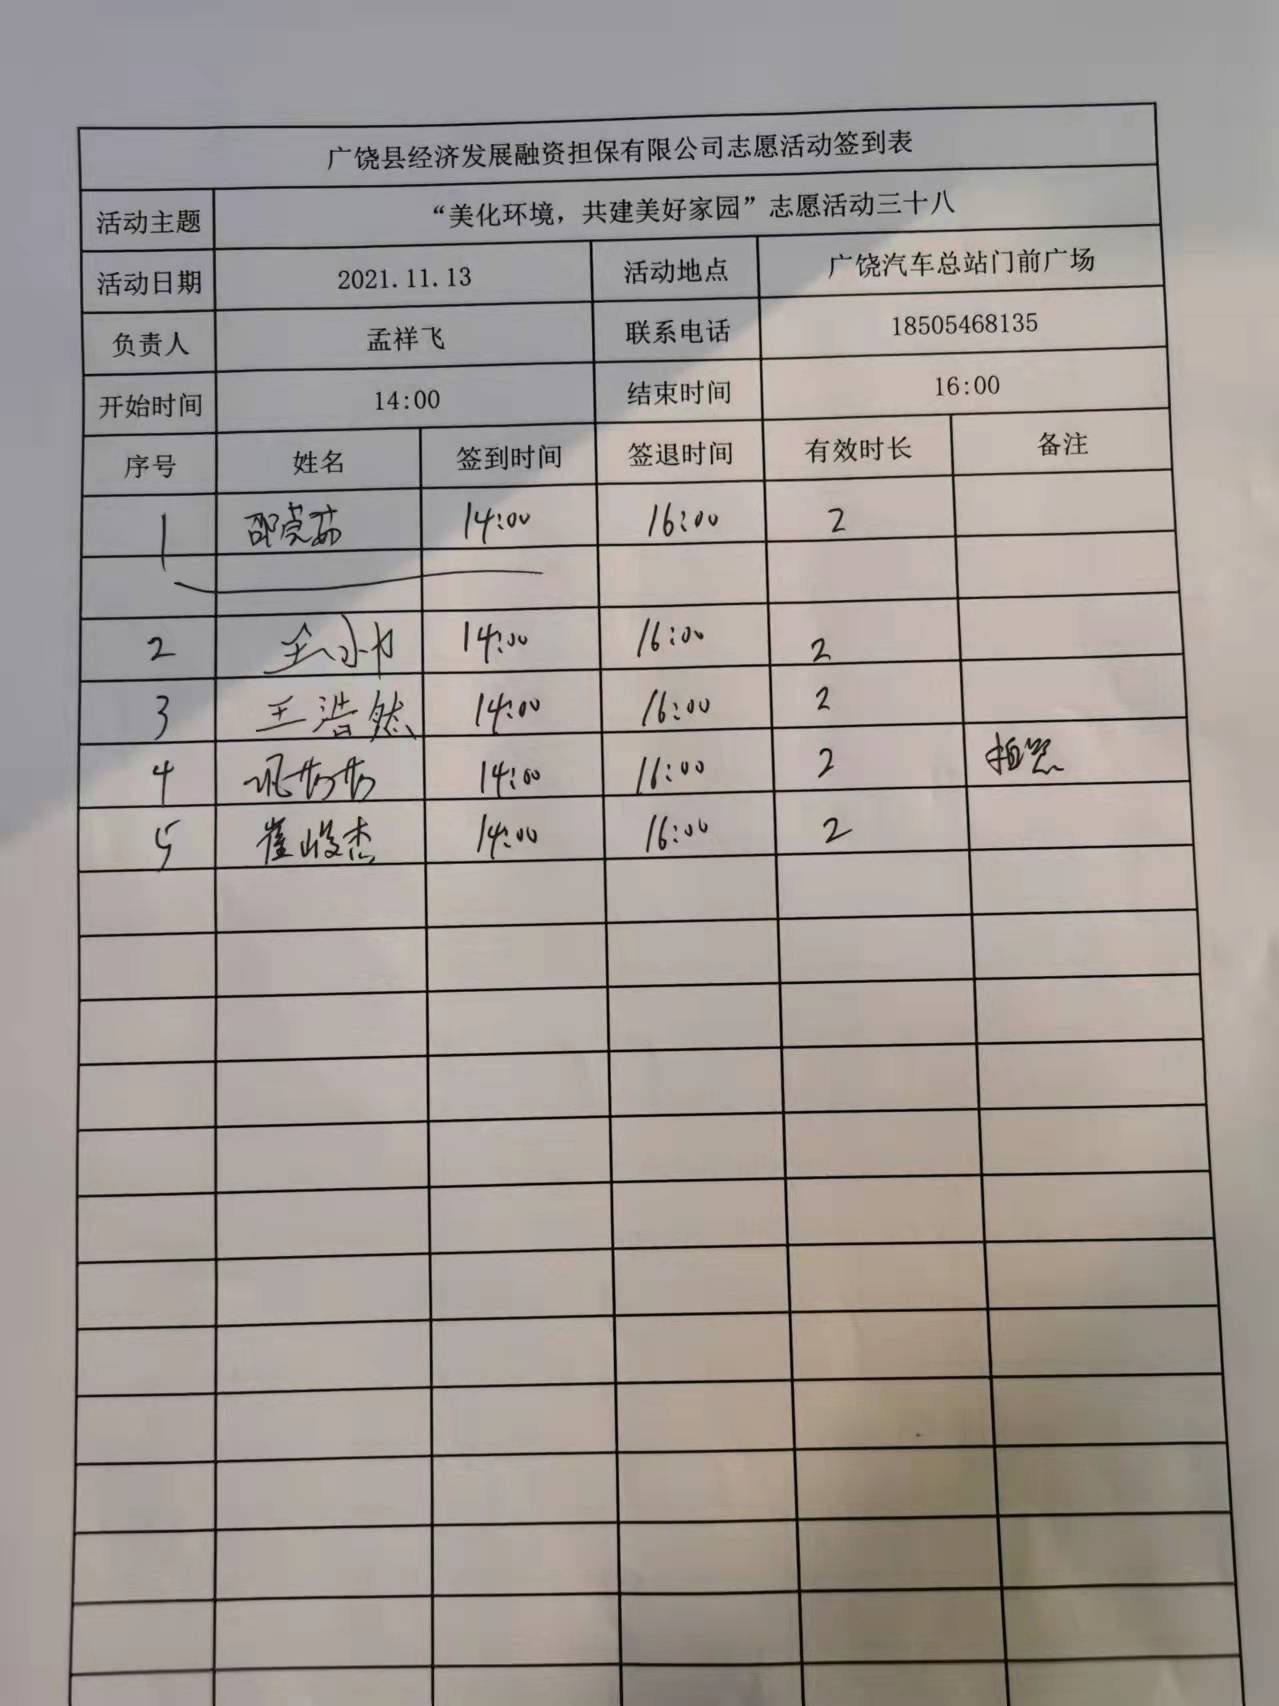 广饶县经济发展融资担保有限公司志愿活动签到表
活动主题 “美化环境，共建美好家园”志愿活动三十八
活动日期 2021.11.13 活动地点 广饶汽车总站门前广场
负责人 孟祥飞 联系电话 18505468135
开始时间 14:00 结束时间 16:00
序号 姓名 签到时间 签退时间 有效时长 备注
1 邵晓茹 14:00 16:00 2
2 14:00 16:00 2
3 王浩然 14:00 16:00 2
4 14:00 16:00 2
5 崔峻杰 14:00 16:00 2